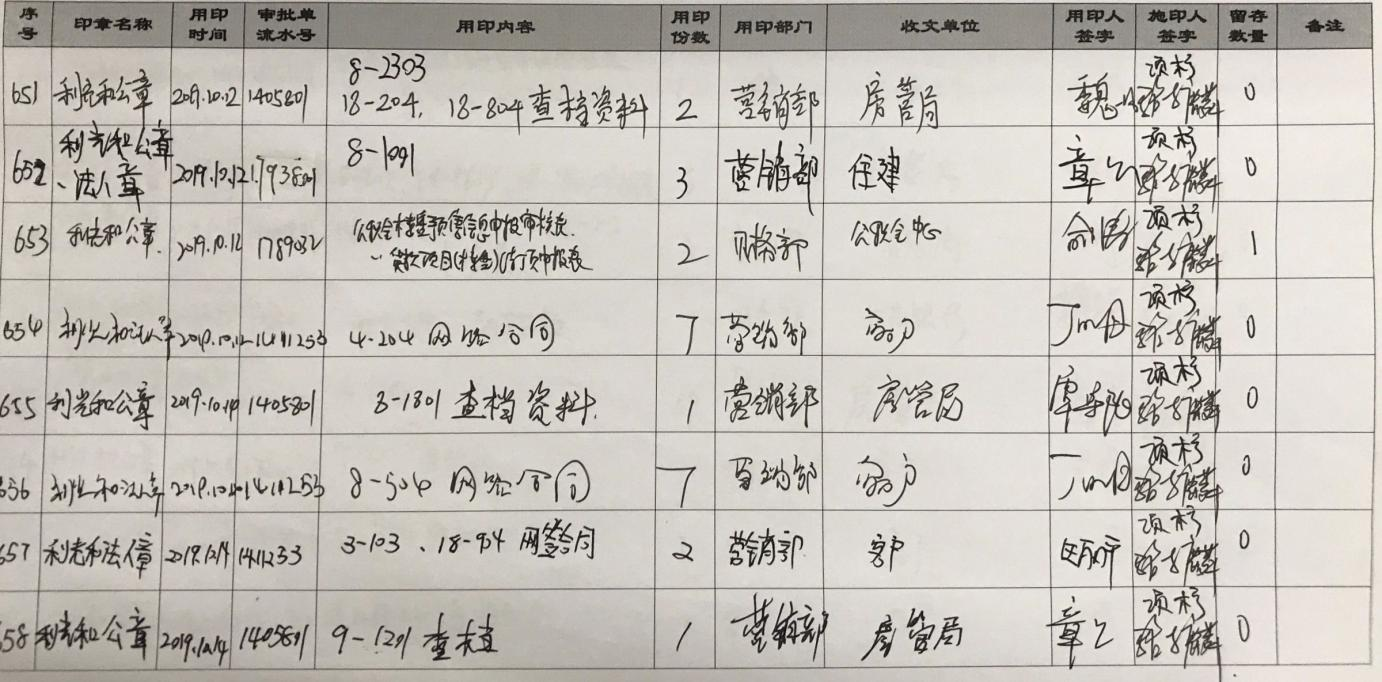 序号 印章名称 用印时间 审批单流水号 用印内容 用印份数 用印部门 收文单位 用印人签字 施印人签字 留存数量 备注
651 利光和公章 2019.10.12 1405801 8-2303
18-204, 18-804 查档资料 2 营销部 房管局 魏 项杉 0
652 利光和公章、法人章 2019.10.12 1793801 8-1001 3 营销部 住建 章 项杉 0
653 利光和公章 2019.10.12 1789032 公积金楼盘预售信息申报审核表
、贷款项目(楼盘)封顶申报表 2 财务部 公积金中心 俞 项杉 1
654 利光和法人章 2019.10.12 1411253 4-204 网签合同 7 营销部 客户 丁 项杉 0
655 利光和公章 2019.10.14 1405801 3-1801 查档资料 1 营销部 房管局 项杉 0
656 利光和法人章 2019.10.14 1411253 8-504 网签合同 7 营销部 客户 丁 项杉 0
657 利光和法人章 2019.10.14 1411253 3-103、18-904 网签合同 2 营销部 客户 项杉 0
658 利光和公章 2019.10.14 1405801 9-1201 查档 1 营销部 房管局 章 项杉 0